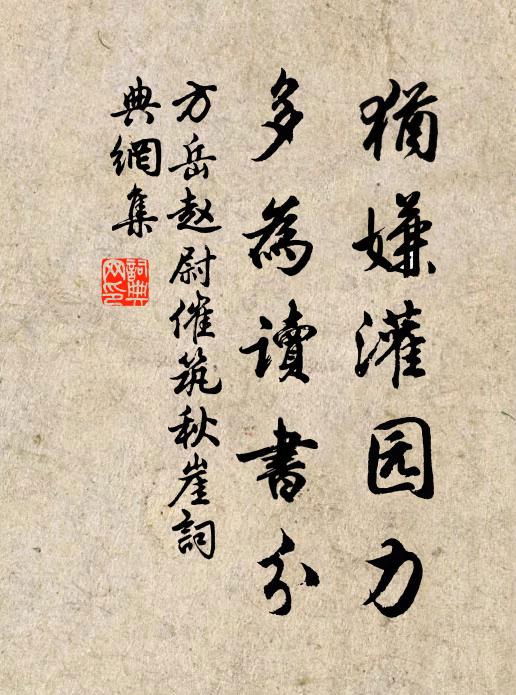 猶嫌灌园力
多為讀書分
方岳赵尉催筑秋崖詞
典網集
詞典
网印